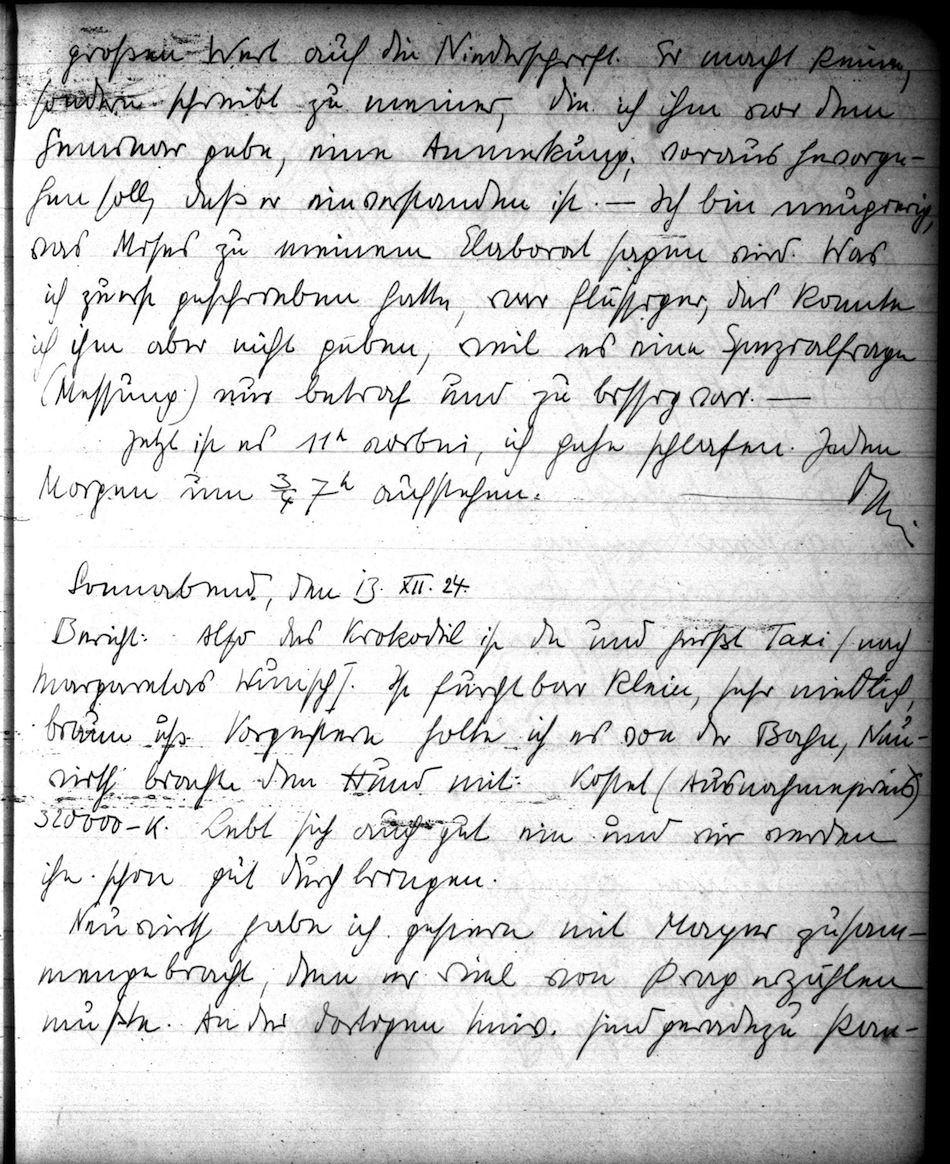 großen Wert auf die Niederschrift. Er macht keine,
sondern schreibt zu meiner, die ich ihm vor dem
Seminar gebe, eine Anmerkung, woraus hervorge-
hen soll, daß er einverstanden ist. — Ich bin neugierig,
was Moses zu meinem Elaborat sagen wird. Was
ich zuerst geschrieben hatte, war flüssiger, das konnte
ich ihm aber nicht geben, weil es eine Spezialfrage
(Messung) nur betraf und zu bissig war. —
Jetzt ist es 11ʰ vorbei, ich gehe schlafen. Jeden
Morgen um ¾ 7ʰ aufstehen.
Sonnabend, den 13. XII. 24.
Bericht: Also das Krokodil ist da und heißt Taxi / nach
Margaretas Wunsch /. Ist furchtbar klein, sehr niedlich,
braun usw. Vorgestern holte ich es von der Bahn, Neu-
wirth brachte den Hund mit. Kostet (Ausnahmepreis)
320000–K. Lebt sich auch gut ein und wir werden
ihn schon gut durchbringen.
Neuwirth habe ich gestern mit Mayer zusam-
mengebracht, dem er viel von Prag erzählen
mußte. An der dortigen Univ. sind geradezu skan-